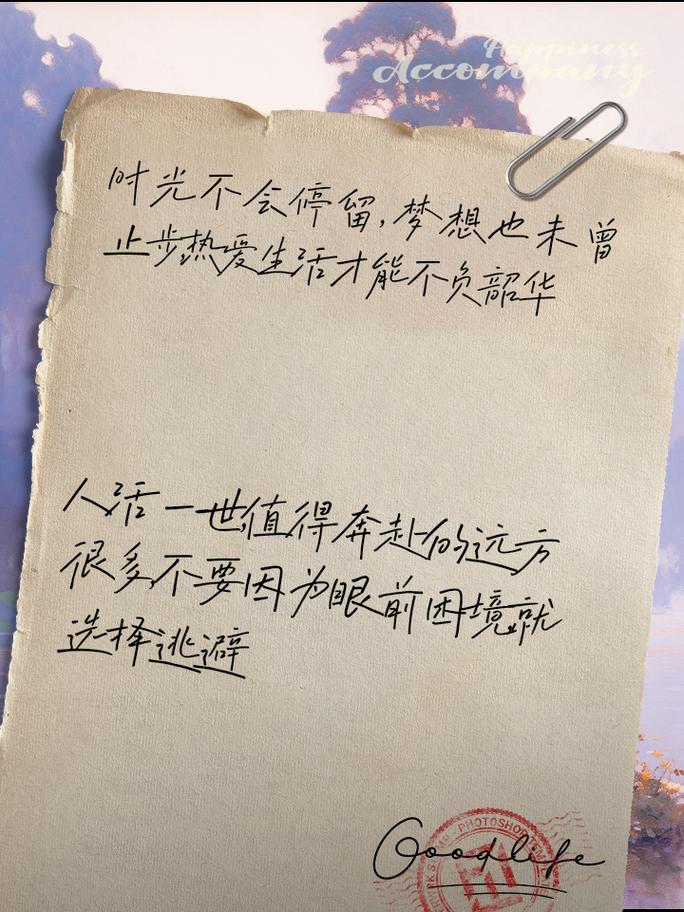 Happiness
Accompany
时光不会停留,梦想也未曾
止步热爱生活才能不负韶华
人活一世,值得奔赴的远方
很多,不要因为眼前困境就
选择逃避
PHOTOSHOP
Goodlife